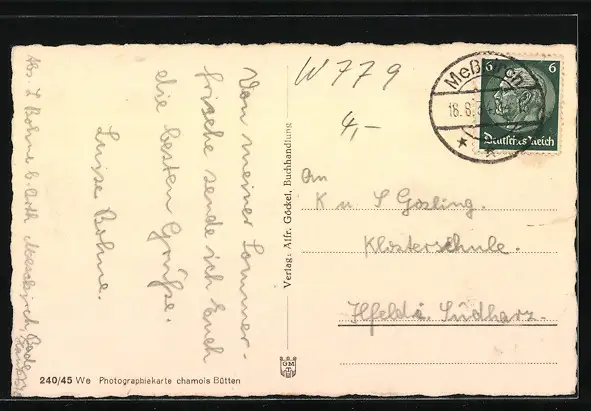 Von meiner Sommer-
frische sende ich Euch
die besten Grüße.
Luise Bohne.
Abs. L. Bohne b. Orth Messkirch, Baden
W 779
4,-
Meßkirch
18.8.
6 6
Deutsches Reich
An
K u. S Gosling.
Klosterschule.
Ilfeld i. Südharz.
Verlag: Alfr. Göckel, Buchhandlung
240/45 We Photographiekarte chamois Bütten